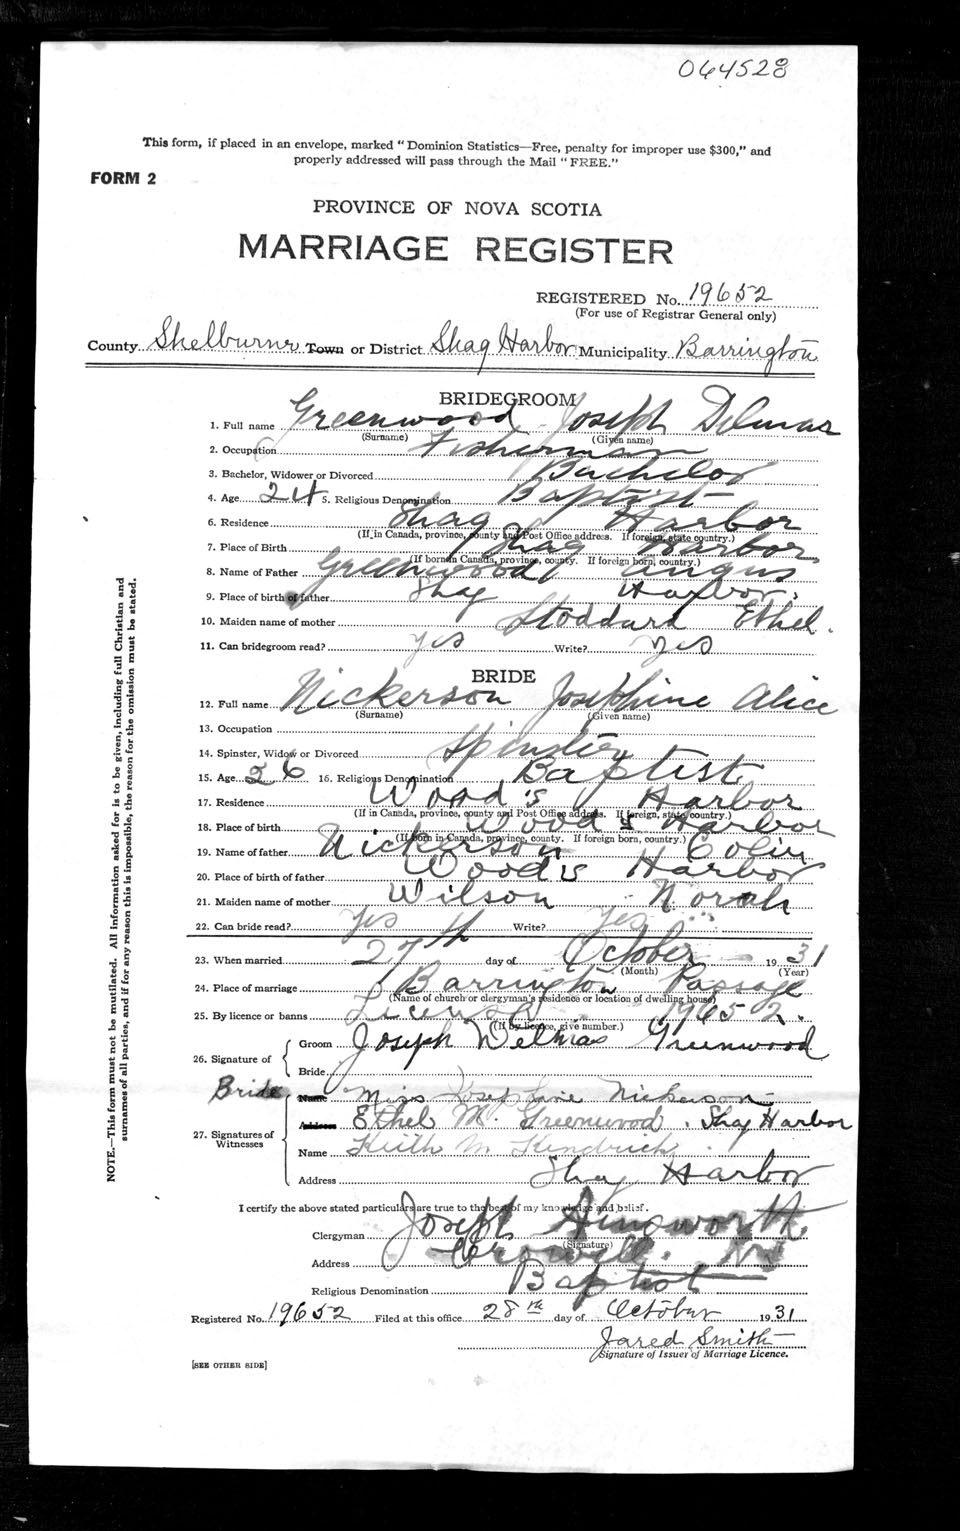 064528
This form, if placed in an envelope, marked "Dominion Statistics—Free, penalty for improper use $300," and
properly addressed will pass through the Mail "FREE."
FORM 2
PROVINCE OF NOVA SCOTIA
MARRIAGE REGISTER
REGISTERED No. 19652
(For use of Registrar General only)
County Shelburne Town or District Shag Harbor Municipality Barrington
BRIDEGROOM
1. Full name Greenwood Joseph Delmar
(Surname) (Given name)
2. Occupation Fisherman
3. Bachelor, Widower or Divorced Bachelor
4. Age 24 5. Religious Denomination Baptist
6. Residence Shag Harbor
(If in Canada, province, county and Post Office address. If foreign, state country.)
7. Place of Birth Shag Harbor
(If born in Canada, province, county. If foreign born, country.)
8. Name of Father Greenwood Angus
9. Place of birth of father Shag Harbor.
10. Maiden name of mother Stoddard Ethel.
11. Can bridegroom read? yes Write? yes
BRIDE
12. Full name Nickerson Josephine Alice
(Surname) (Given name)
13. Occupation
14. Spinster, Widow or Divorced Spinster
15. Age 26 16. Religious Denomination Baptist
17. Residence Wood's Harbor
(If in Canada, province, county and Post Office address. If foreign, state country.)
18. Place of birth Wood's Harbor
(If born in Canada, province, county. If foreign born, country.)
19. Name of father Nickerson Colin
20. Place of birth of father Wood's Harbor
21. Maiden name of mother Wilson Norah
22. Can bride read? Yes Write? Yes
23. When married 27th day of October 1931
(Month) (Year)
24. Place of marriage Barrington Passage
(Name of church or clergyman's residence or location of dwelling house)
25. By licence or banns License 19652.
(If by licence, give number.)
26. Signature of Groom Joseph Delmar Greenwood
Bride
Bride Name Miss Josephine Nickerson
27. Signatures of Witnesses Address Ethel M. Greenwood. Shag Harbor
Name Keith M. Kendrick
Address Shag Harbor
I certify the above stated particulars are true to the best of my knowledge and belief.
Clergyman Joseph Ainsworth
(Signature)
Address Crowell. NS
Religious Denomination Baptist
Registered No. 19652 Filed at this office 28th day of October 1931
Jared Smith
Signature of Issuer of Marriage Licence.
[SEE OTHER SIDE]
NOTE.—This form must not be mutilated. All information asked for is to be given, including full Christian and
surnames of all parties, and if for any reason this is impossible, the reason for the omission must be stated.